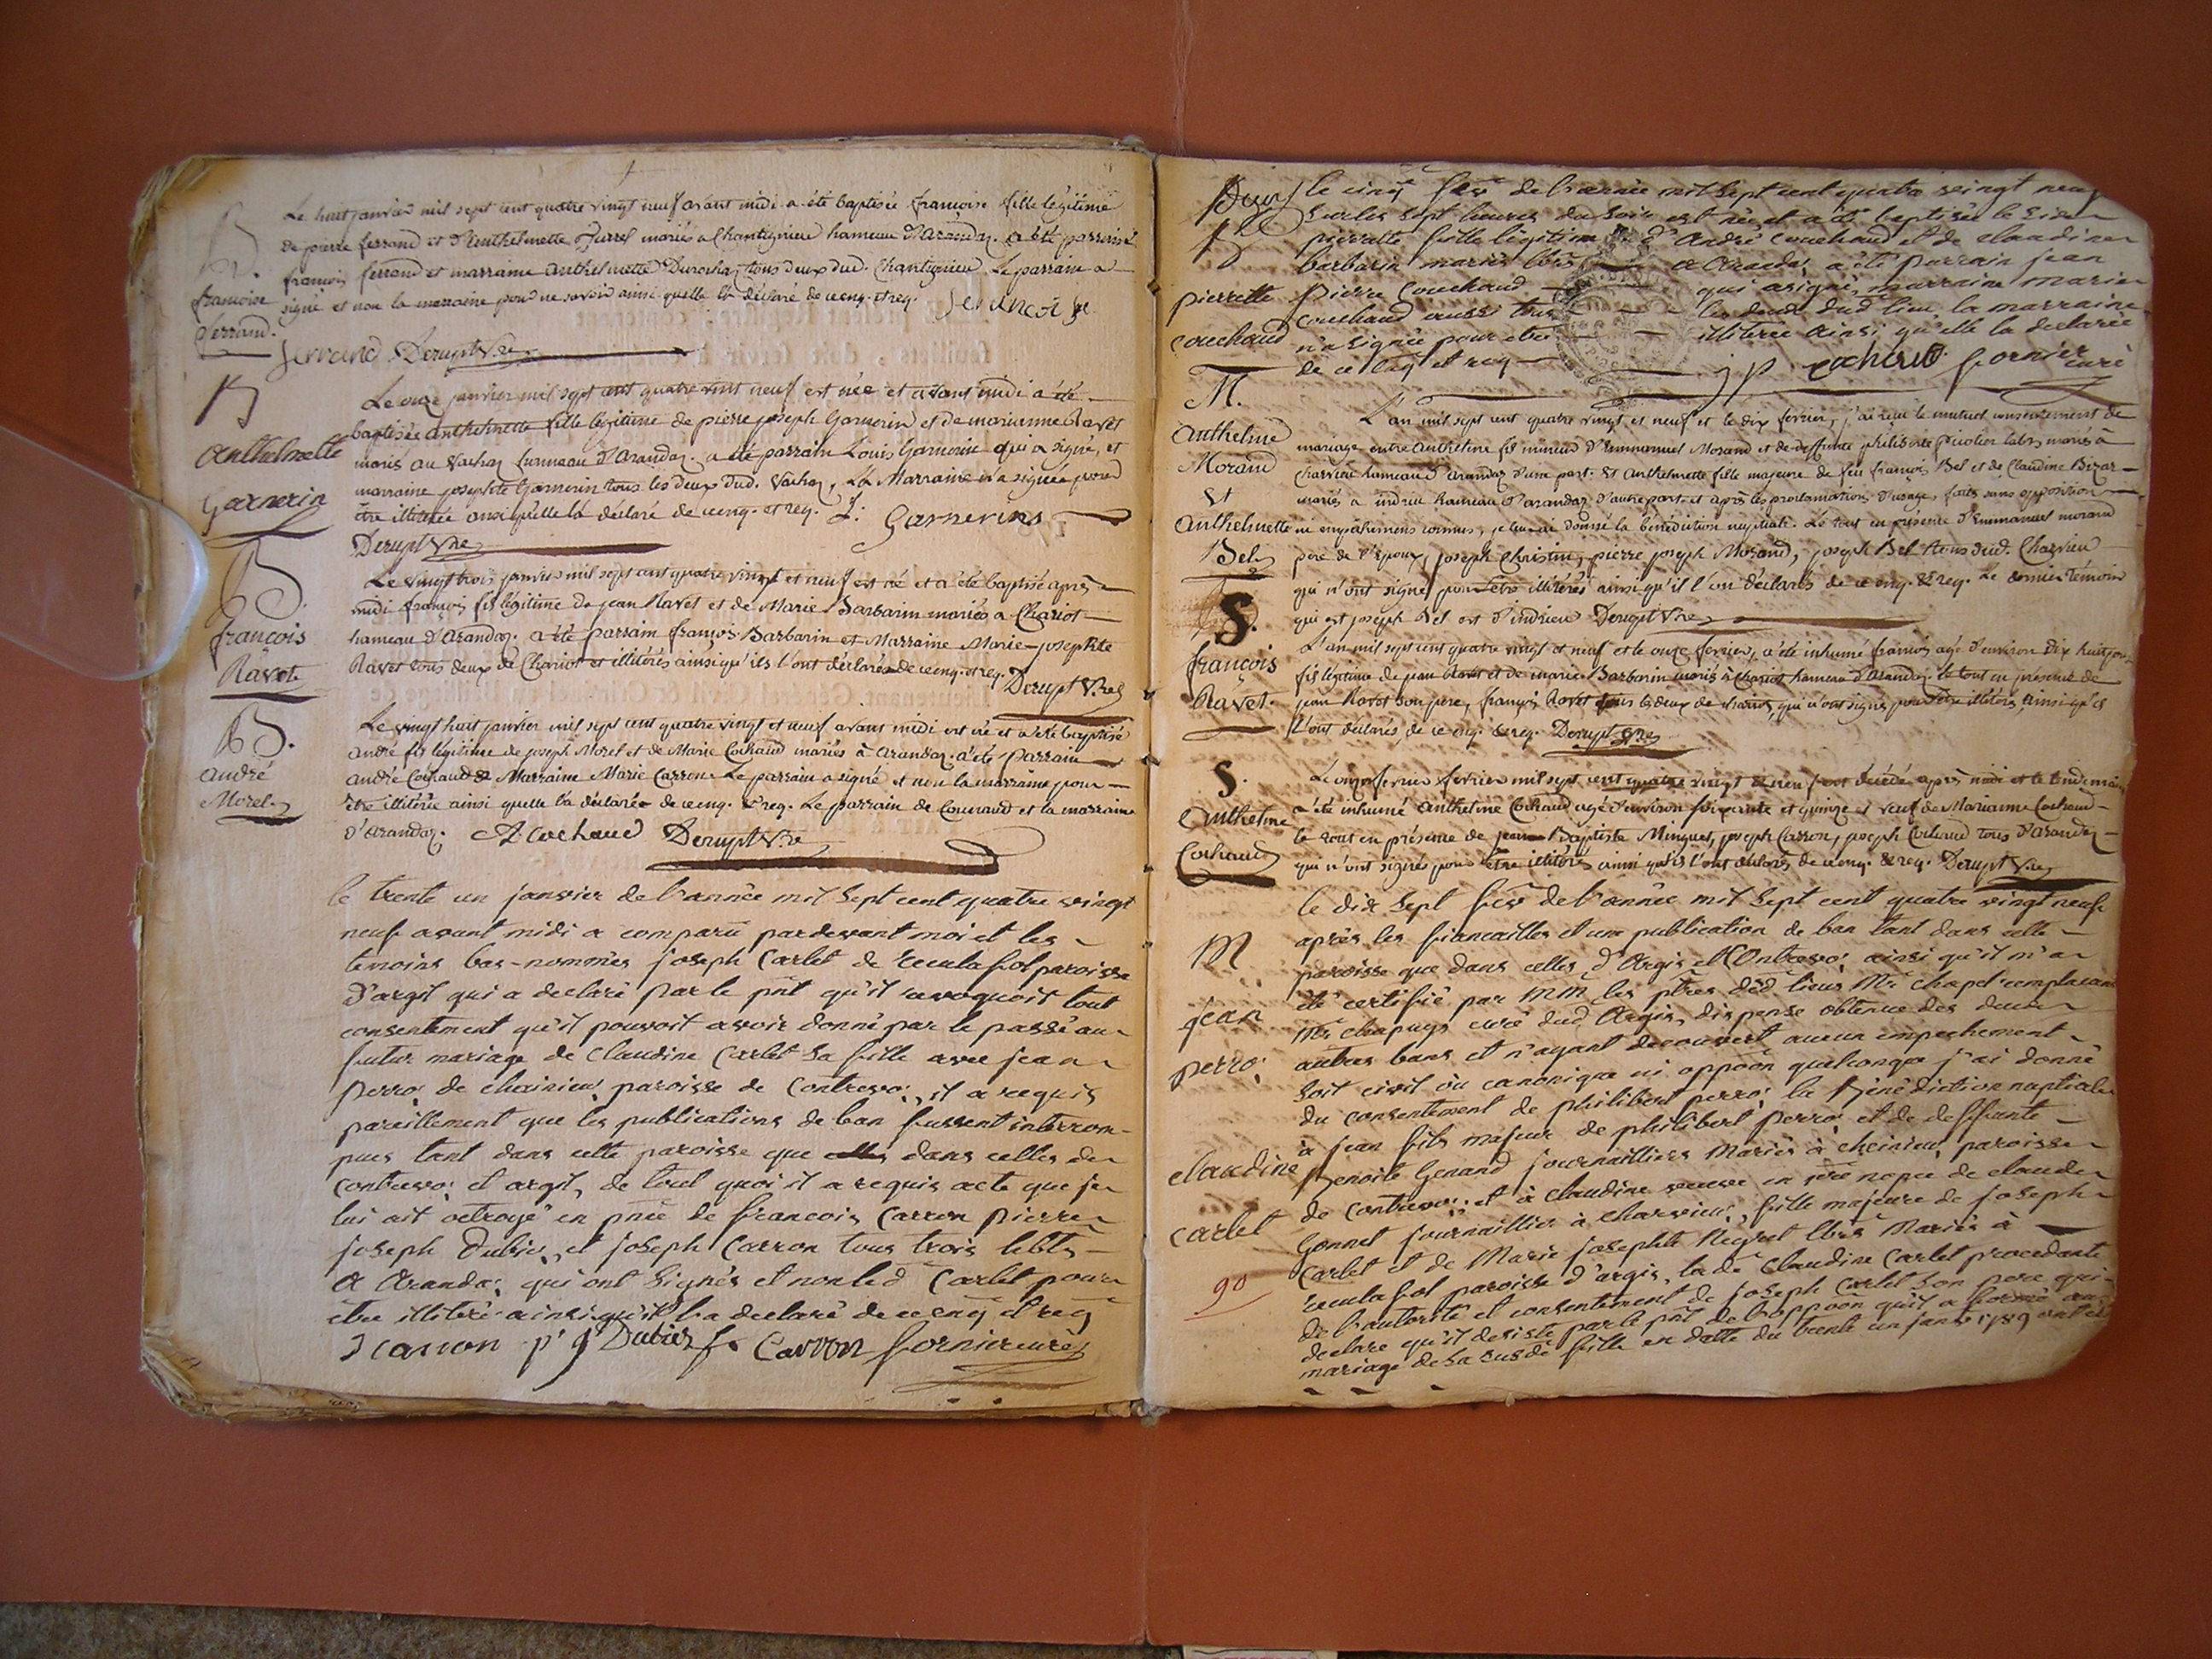 Le huit janvier mil sept cent quatre vingt neuf avant midi a été baptisée francoise fille légitime
de pierre ferrand et d'Anthelmette Jurrel mariés a Chantignieu hameau d'Arandaz. a été parrain
françois ferrand et marraine anthelmette tous deux dud. Chantignieu Le parrain a
signé et non la marraine pour ne savoir ainsi quelle l'a déclaré de ce enq. et req.
B.
francoise
ferrand.
ferrand Derupt Vre
B
Anthelmette
Garnerin
Le onze janvier mil sept cent quatre vint neuf est née et avant midi a été
baptisée anthelmette fille légitime de pierre joseph Garnerin et de marianne Ravet
mariés au Vachaz hameau d'Arandaz. a été parrain Louis Garnerin qui a signé, et
marraine josephte Garnerin tous les deux dud. Vachaz, La Marraine n'a signée pour
être illitérée ainsi qu'elle l'a déclaré de ce enq. et req. L: Garnerins
Derupt Vre
B.
françois
Ravet
Le vingt trois janvier mil sept cent quatre vingt et neuf est né et a été baptisé après
midi françois fils légitime de jean Ravet et de Marie Barbarin mariés a Chariot
hameau d'Arandaz. a été parrain françois Barbarin et Marraine Marie-josephte
Ravet tous deux de Chariot et illitérés ainsi qu'ils l'ont déclarés de ce enq. et req.
Derupt Vre
B.
André
Morel
Le vingt huit janvier mil sept cent quatre vingt et neuf avant midi est né et a été baptisé
André fils légitime de joseph Morel et de Marie Cochaud mariés à Arandaz. a été Parrain
André Cochaud & Marraine Marie Carron Le parrain a signé et non la marraine pour
être illitérée ainsi quelle l'a déclarée de ce enq. & req. Le parrain de et la marraine
d'Arandaz. A. Cochaud Derupt Vre
le trente un janvier de l'année mil sept cent quatre vingt
neuf avant midi a comparu pardevant moi et les
temoins bas-nommés joseph Carlet de reculafol paroisse
d'argil qui a declaré par le pnt qu'il revoquoit tout
consentement qu'il pouvoit avoir donné par le passé au
futur mariage de Claudine Carlet sa fille avec jean
perro: de cheinieu paroisse de Contrevo:, il a requis
pareillement que les publications de ban fussent interrom-
pues tant dans cette paroisse que dans celles de
Contrevo: et argil, de tout quoi il a requis acte que je
lui ait octroyé en pnce de francois Carron pierre
joseph Dubie, et joseph Carron tous trois lebts
a Aranda: qui ont signés et non led Carlet pour
être illiteré ainsi qu'il l'a declaré de ce enq et req
J Carron p j Dubiez f. Carron fornier curé
le cinq fev de l'année mil sept cent quatre vingt neuf
sur les sept heures du soir est née, et a été baptisée le six
pierrette fille légitime d'André couchaud et de claudine
barbarin mariés lbrs a Aranda: a été parrain jean
pierre Couchaud qui a signé, marraine marie
couchaud aussi tous les deux dud lieu, la marraine
n'a signée pour être illiterée ainsi qu'elle la declarée
de ce enq et req j p cochaud fornier curé
pierrette
couchaud
M.
Anthelme
Morand
Et
Anthelmette
Bel
L'an mil sept cent quatre vingt et neuf et le dix fevrier, j'ai reçu le mutuel consentement de
mariage entre Anthelme fils mineur d'Emmanuel Morand et de deffunte philiberte picolier labr. mariés à
Charvieu hameau d'Arandaz d'une part. Et Anthelmette fille majeure de feu françois Bel et de Claudine Bizar
mariés a indrieu hameau d'arandaz d'autre part, et après les proclamations d'usage, faites sans opposition
ni empêchemens connus, je leur ai donné la bénédiction nuptiale. Le tout en présence d'Emmanuel morand
pere de l'Epoux, joseph Christin, pierre joseph Morand, joseph Bel tous dud. Charvieu
qui n'ont signé pour être illitérés ainsi qu'il l'on déclarés de ce enq. & req. Le dernier témoin
qui est joseph Bel est d'indrieu Derupt Vre
S.
françois
Ravet.
L'an mil sept cent quatre vingt et neuf et le onze fevrier, a été inhumé françois agé d'environ dix huit jour
fils légitime de jean Ravet et de marie Barbarin mariés à Chariot hameau d'Arandaz. le tout en présence de
jean Ravet son pere, françois Ravet tous les deux de chariot, qui n'ont signés pour être illitérés ainsi qu'ils
l'ont déclarés de ce enq. & req. Derupt Vre
S.
Anthelme
Cochaud
Le onze fevrier fevrier mil sept cent quatre vingt & neuf est décédé après midi et le lendemain
a été inhumé Anthelme Cochaud agé d'environ soixante et quinze et veuf de Marianne Cochaud
le tout en présence de jean Baptiste Minguet, joseph Carron, joseph Cochaud tous d'Arandaz
qui n'ont signés pour être illitérés ainsi qu'ils l'ont déclarés de ce enq. & req. Derupt Vre
M
jean
perro:
claudine
carlet
90
le dix sept fev de l'année mil sept cent quatre vingt neuf
après les fiancailles et une publication de ban tant dans cette
paroisse que dans celles d'Argis et Contrevo: ainsi qu'il m'a
été certifié par MM les ptres desd lieux Mr chapel remplacant
Mr chapuys curé dud Argis, dispense obtenue des deux
autres bans et n'ayant decouvert aucun empechement
soit civil ou canonique ni oppoon quelconque j'ai donné
du consentement de philibert perro: la Bénédiction nuptiale
à jean fils majeur de philibert perro: et de deffunte
Benoite Genand journailliers Mariés à cheinieu paroisse
de Contrevo:, et à claudine veuve en 1ere nopce de claude
Gonnet journaillier à charvieu, fille majeure de joseph
Carlet et de Marie josephte Négret lbrs Mariés à
reculafol paroisse d'argis, lade Claudine Carlet procedante
de l'autorité et consentement de joseph Carlet son pere qui
declare qu'il desiste par le pnt de l'oppoon qu'il a formé au
mariage de sa susde fille en datte du trente un janv 1789